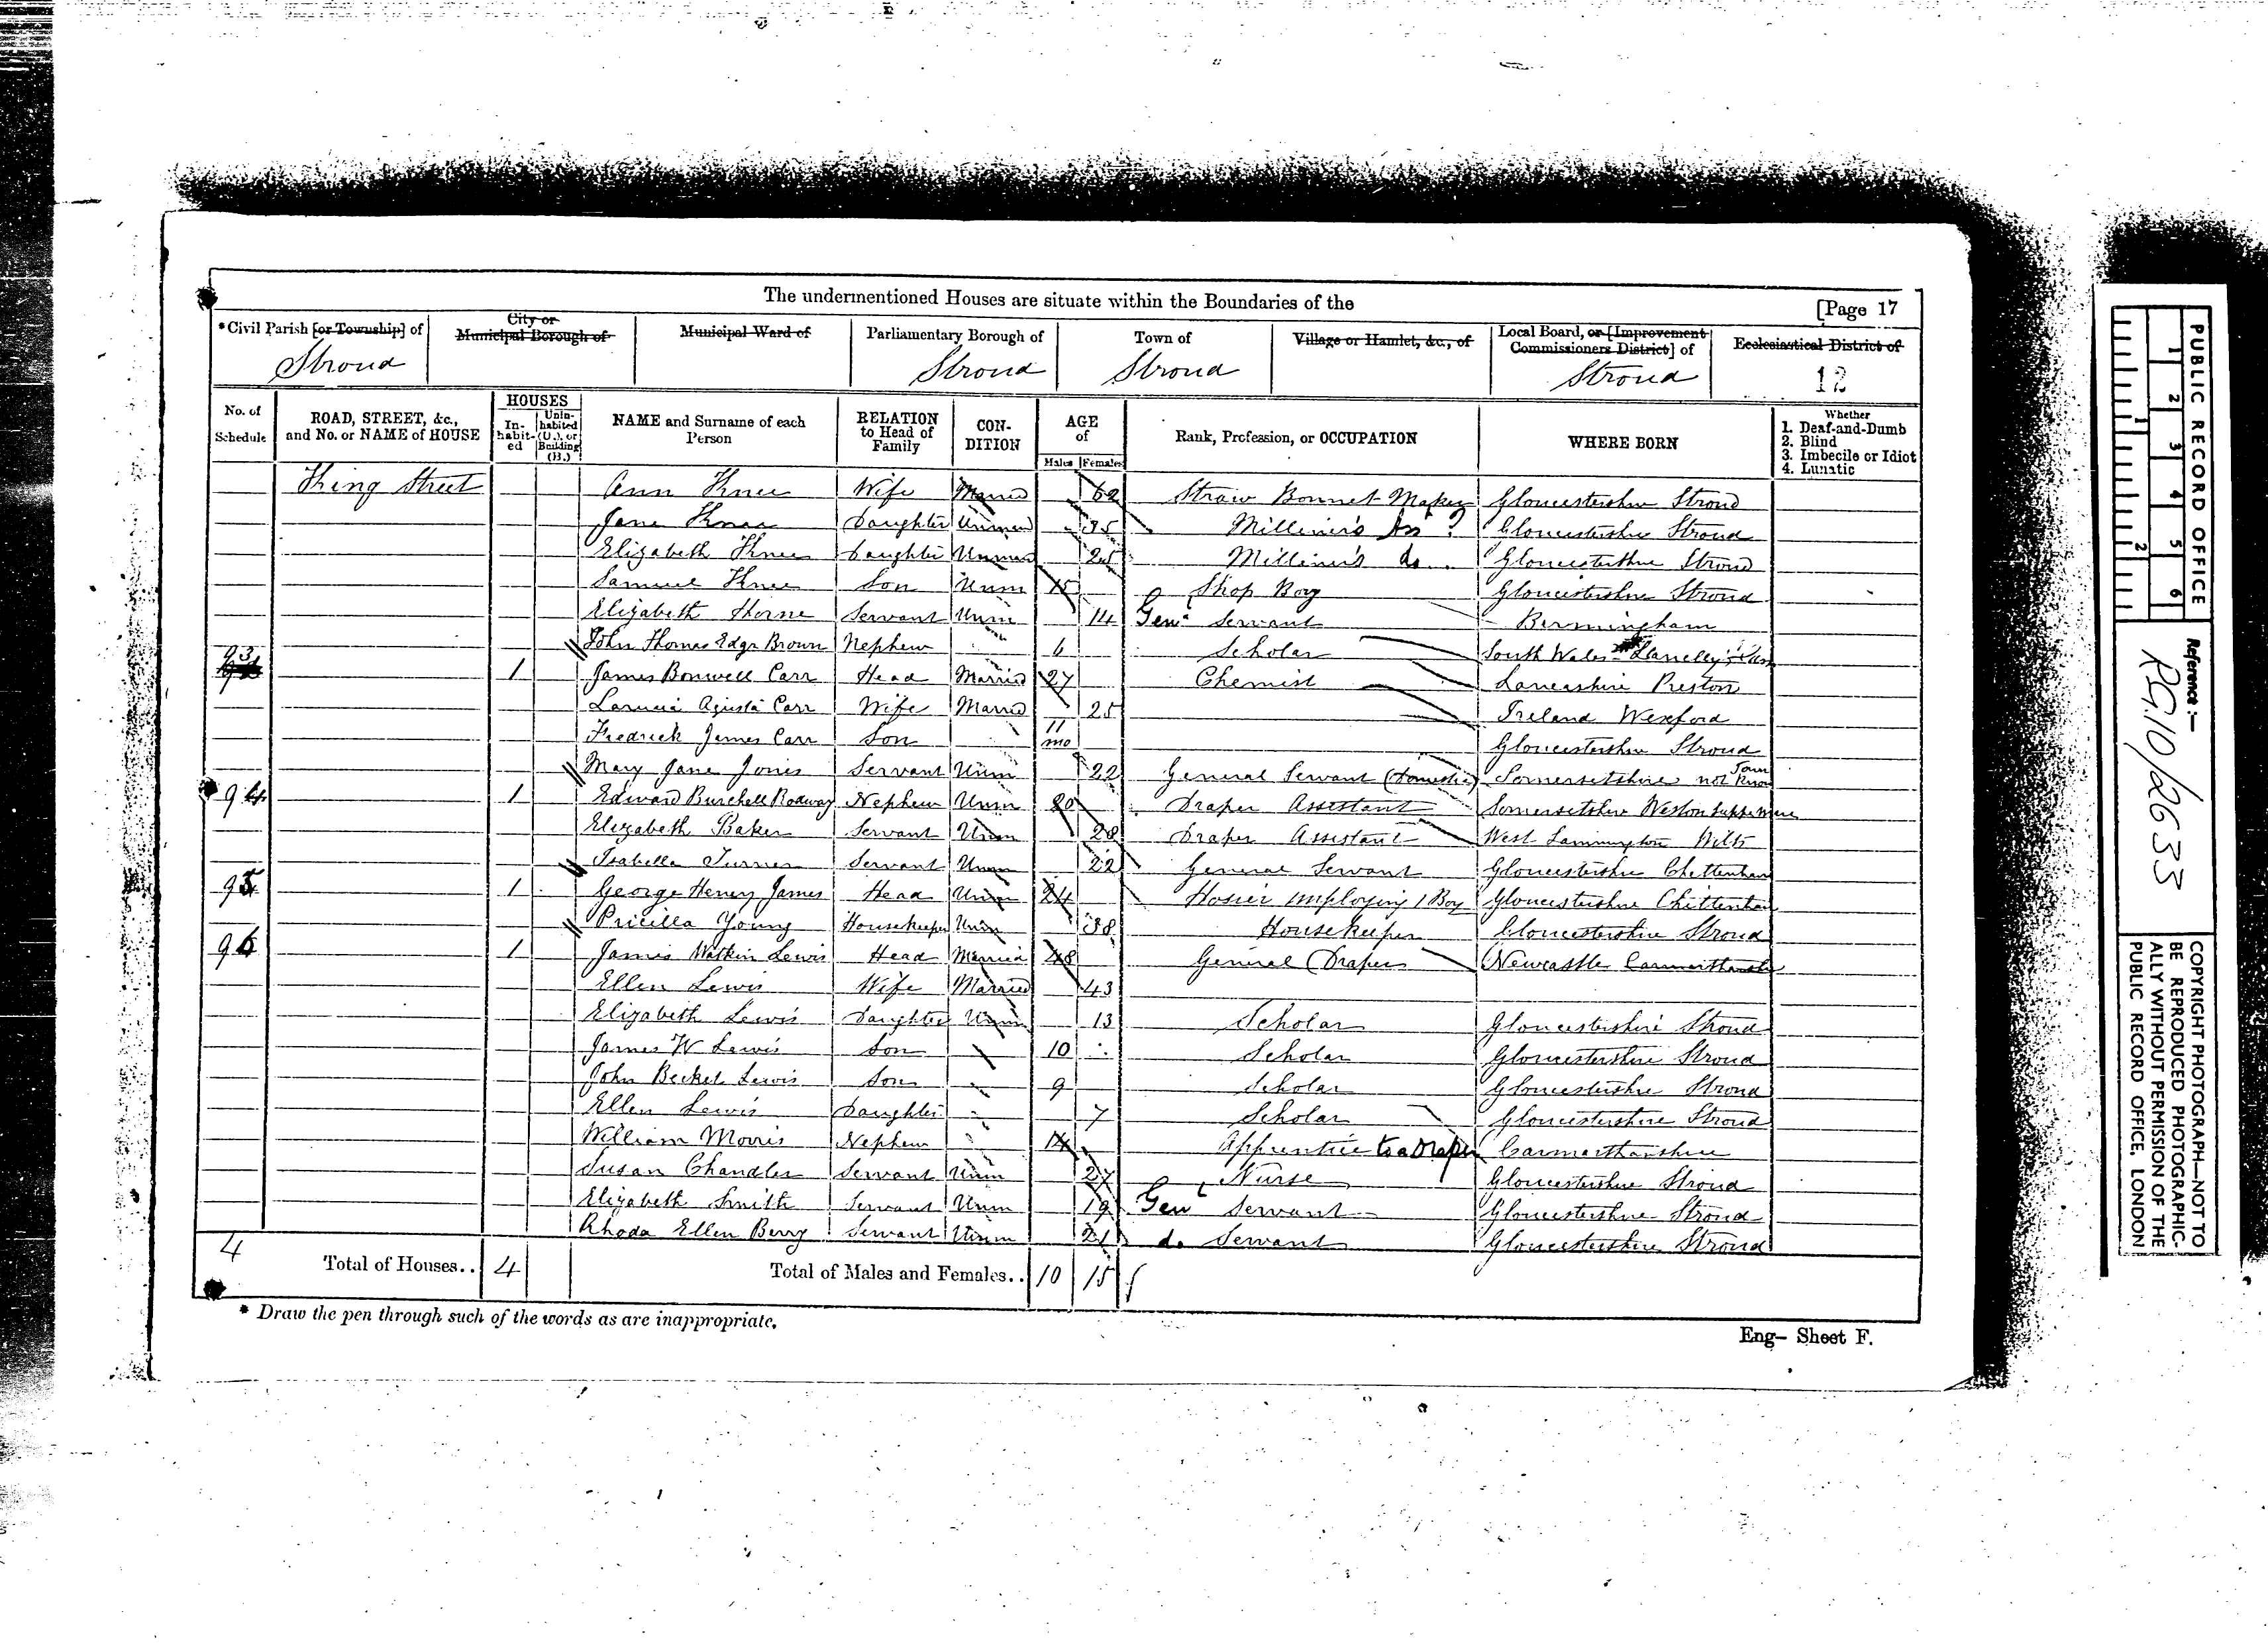 The undermentioned Houses are situate within the Boundaries of the [Page 17
*Civil Parish [or Township] of City or Municipal Borough of Municipal Ward of Parliamentary Borough of Town of Village or Hamlet, &c., of Local Board, or [Improvement Commissioners District] of Ecclesiastical District of
Stroud Stroud Stroud Stroud 12
No. of Schedule ROAD, STREET, &c., and No. or NAME of HOUSE HOUSES Inhabited Uninhabited (U.), or Building (B.) NAME and Surname of each Person RELATION to Head of Family CONDITION AGE of Males Females Rank, Profession, or OCCUPATION WHERE BORN Whether 1. Deaf-and-Dumb 2. Blind 3. Imbecile or Idiot 4. Lunatic
King Street Ann Knee Wife Married 62 Straw Bonnet Maker Gloucestershire Stroud
Jane Knee Daughter Unmarried 35 Milliner's Ass Gloucestershire Stroud
Elizabeth Knee Daughter Unmar 25 Milliner's do. Gloucestershire Stroud
Samuel Knee Son Unm 15 Shop Boy Gloucestershire Stroud
Elizabeth Horne Servant Unm 14 Genl Servant Birmingham
John Thomas Edgr Brown Nephew 6 Scholar South Wales Lanelly
93 1 James Bonwell Carr Head Married 27 Chemist Lancashire Preston
Agusta Carr Wife Married 25 Ireland Wexford
Fredrick James Carr Son 11 mo Gloucestershire Stroud
Mary Jane Jones Servant Unm 22 General Servant (Domestic) Somersetshire Town not Know
94 1 Edward Burchell Rodway Nephew Unm 20 Draper Assistant Somersetshire Weston Supper Mare
Elizabeth Baker Servant Unm 28 Draper Assistant West Lavington Wilts
Isabella Turner Servant Unm 22 General Servant Gloucestershire Cheltenham
95 1 George Henry James Head Unm 24 Hosier employing 1 Boy Gloucestershire Cheltenham
Pricilla Young Housekeeper Unm 38 Housekeeper Gloucestershire Stroud
96 1 James Watkin Lewis Head Married 48 General Draper Newcastle Carmarthensh
Ellen Lewis Wife Married 43
Elizabeth Lewis Daughter Unm 13 Scholar Gloucestershire Stroud
James W Lewis Son 10 Scholar Gloucestershire Stroud
John Beckel Lewis Son 9 Scholar Gloucestershire Stroud
Ellen Lewis Daughter 7 Scholar Gloucestershire Stroud
William Morris Nephew 14 Apprentice to a Draper Carmarthanshire
Susan Chandler Servant Unm 27 Nurse Gloucestershire Stroud
Elizabeth Smith Servant Unm 19 Genl Servant Gloucestershire Stroud
Rhoda Ellen Berry Servant Unm 21 do Servant Gloucestershire Stroud
4 Total of Houses.. 4 Total of Males and Females.. 10 15
* Draw the pen through such of the words as are inappropriate.
Eng- Sheet F.
PUBLIC RECORD OFFICE
1 2 3 4 5 6
1 2
Reference:-
RG10/2633
COPYRIGHT PHOTOGRAPH—NOT TO
BE REPRODUCED PHOTOGRAPHIC-
ALLY WITHOUT PERMISSION OF THE
PUBLIC RECORD OFFICE, LONDON